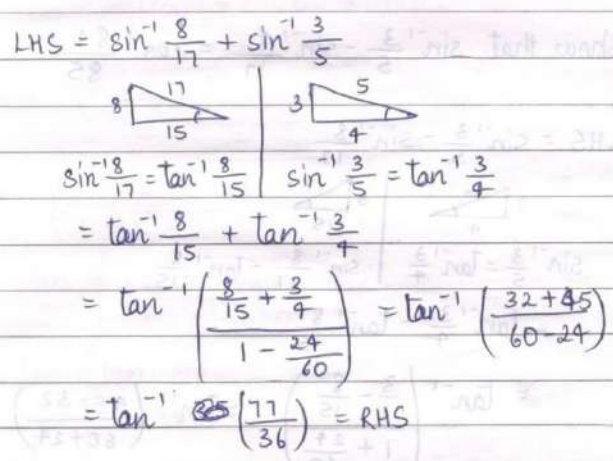 LHS = sin⁻¹ 8/17 + sin⁻¹ 3/5
8 17 15 3 5 4
sin⁻¹ 8/17 = tan⁻¹ 8/15 | sin⁻¹ 3/5 = tan⁻¹ 3/4
= tan⁻¹ 8/15 + tan⁻¹ 3/4
= tan⁻¹ ((8/15 + 3/4)/(1 - 24/60)) = tan⁻¹ ((32+45)/(60-24))
= tan⁻¹ (77/36) = RHS